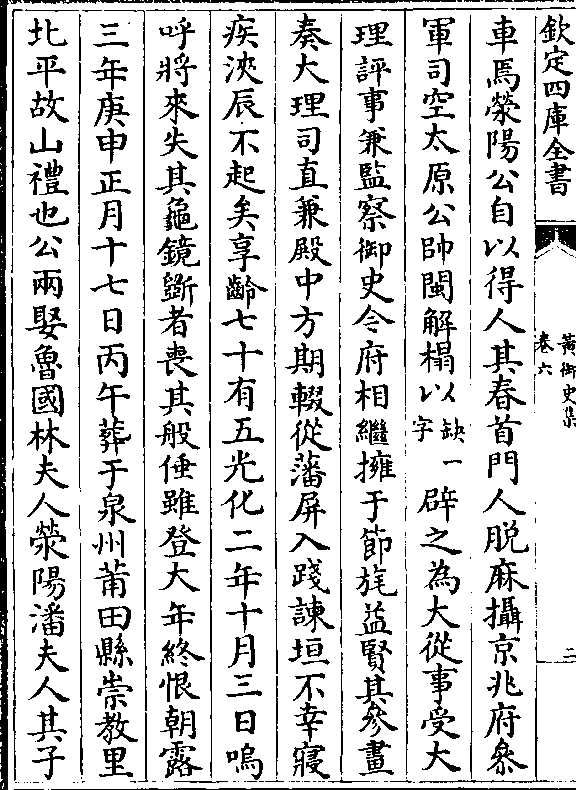 欽定四庫全書
黃御史集
卷六
二
車焉滎陽公自以得人其春首門人脱麻攝京兆府叅
軍司空太原公帥閩解榻以缺一字辟之為大從事受大
理評事兼監察御史今府相繼擁于節旄益賢其參畫
奏大理司直兼殿中方期輟從藩屏入踐諫垣不幸寢
疾浹辰不起矣享齡七十有五光化二年十月三日嗚
呼將來失其龜鏡斵者喪其般倕雖登大年終恨朝露
三年庚申正月十七日丙午葬于泉州莆田縣崇教里
北平故山禮也公兩娶魯國林夫人滎陽潘夫人其子